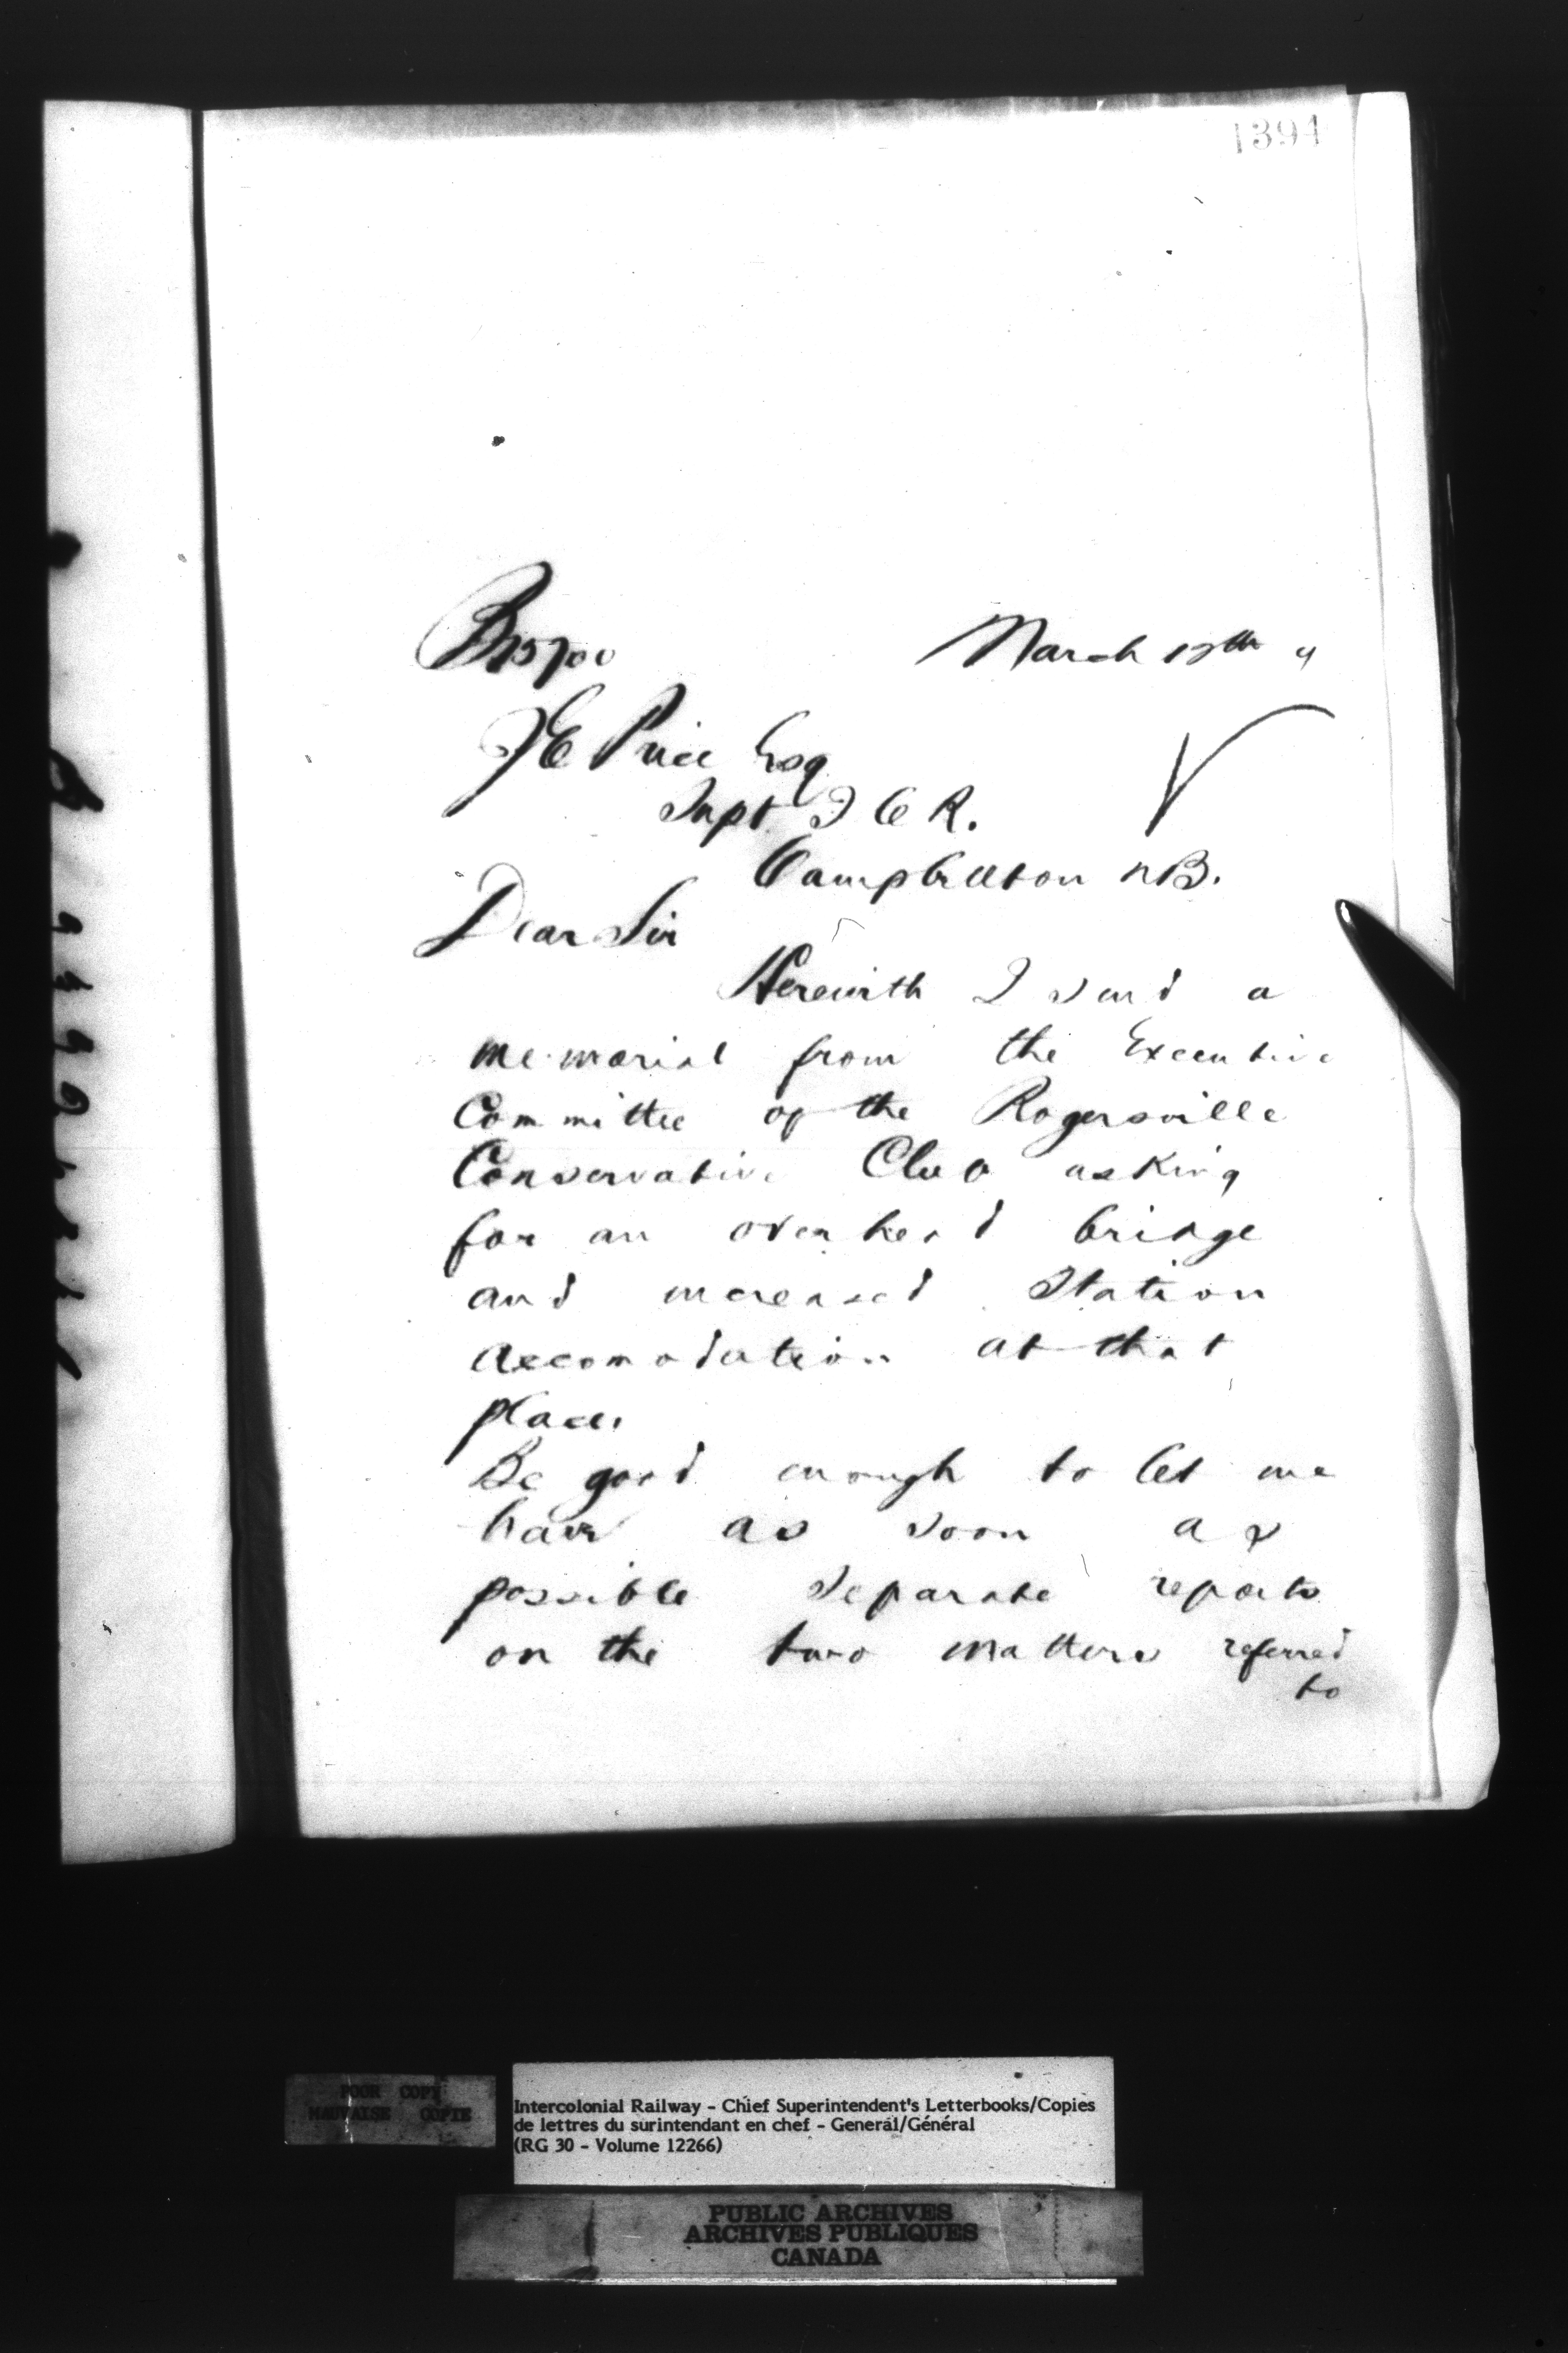 1394
B15700
March 13th
J E Price Esq
Supt I C R.
Campbellton NB.
Dear Sir
Herewith I send a
memorial from the Executive
Committee of the Rogersville
Conservative Club asking
for an overhead bridge
and increased Station
accomodation at that
place.
Be good enough to let me
have as soon as
possible separate reports
on the two matters referred
to
POOR COPY
MAUVAISE COPIE
Intercolonial Railway - Chief Superintendent's Letterbooks/Copies
de lettres du surintendant en chef - General/Général
(RG 30 - Volume 12266)
PUBLIC ARCHIVES
ARCHIVES PUBLIQUES
CANADA